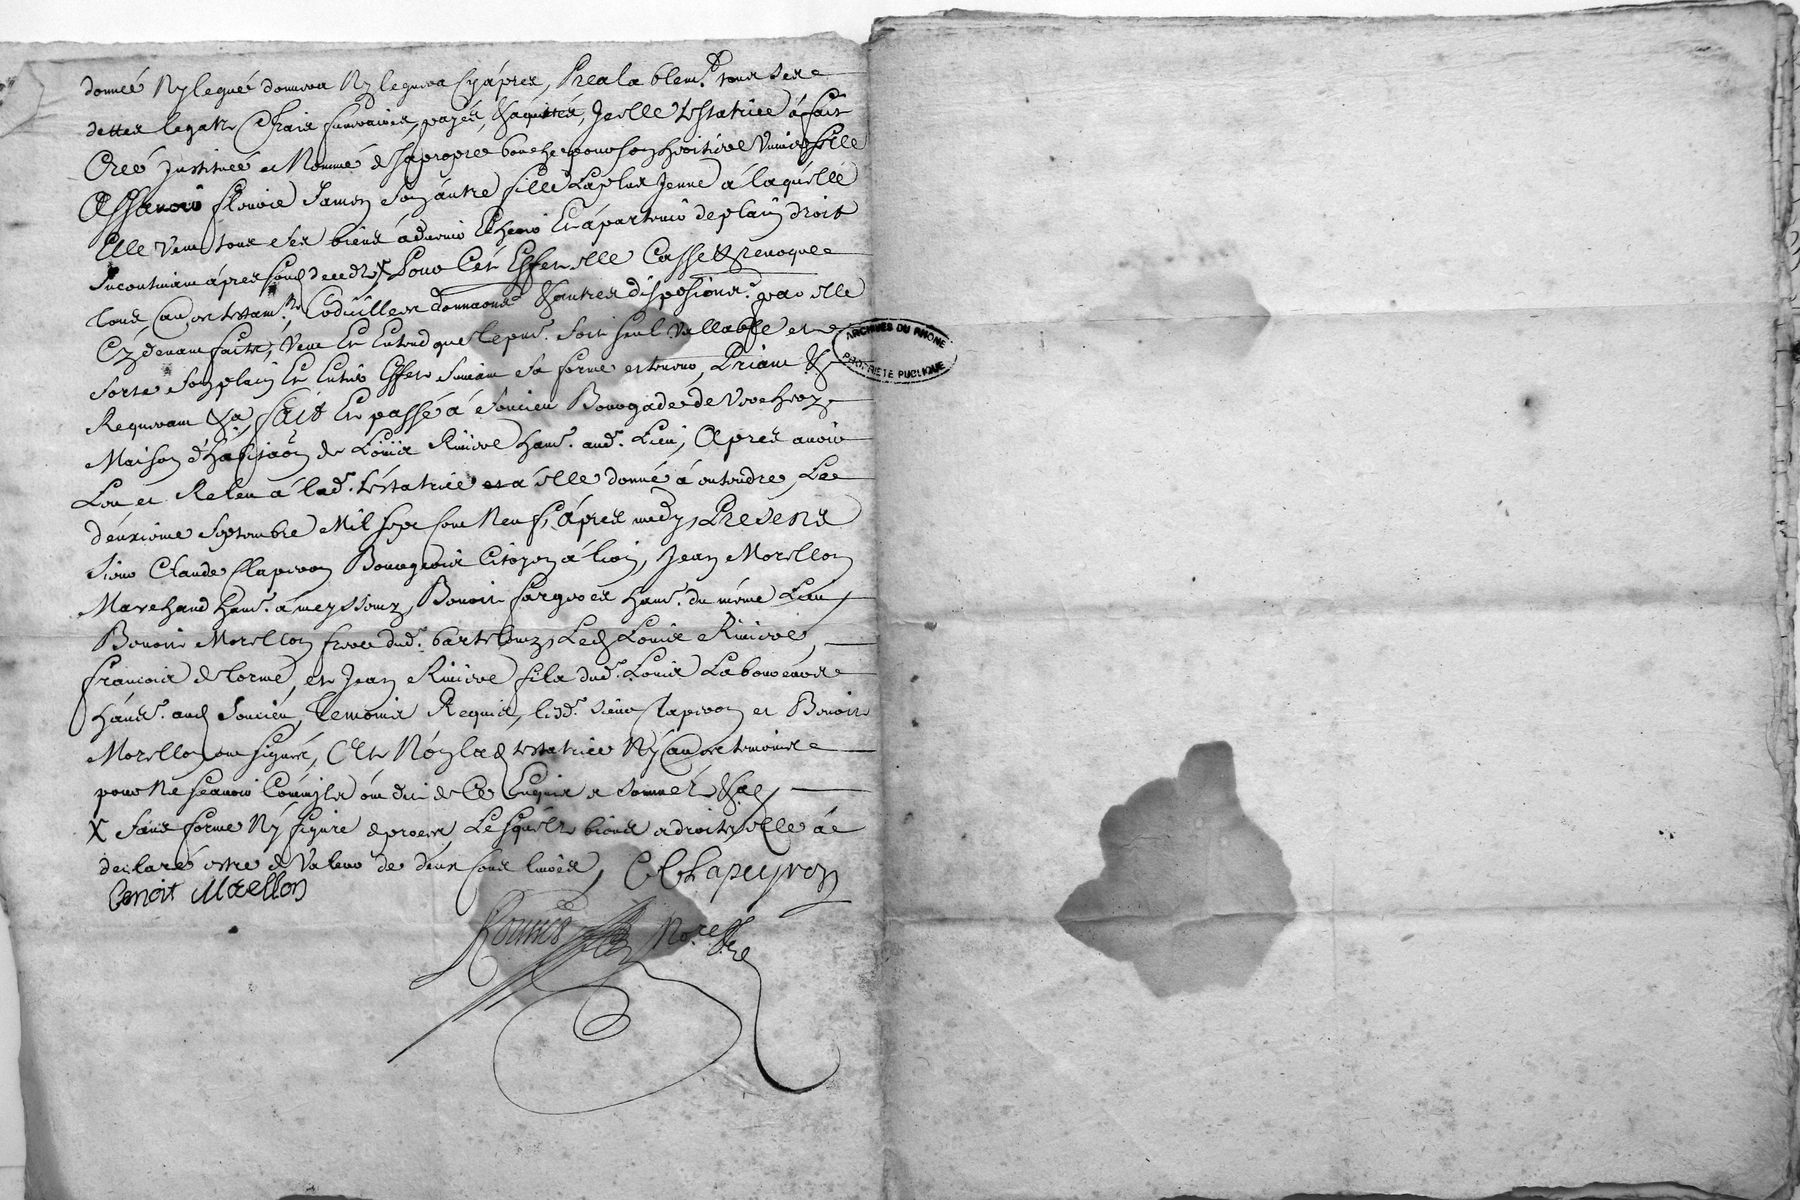 donné Ny legué donnera Ny leguera Cyápres, Prealablemt. tous Sese
dettes legatz & frais funeraires, payés, &aquittés, Jcelle testatrice á fait
Creé Jnstitué et Nommé de sa propre bouche pour son heritiere Universelle
Assavoir fleurie Samon son áutre fille La plus Jeune á laquélle
Elle veut tous ses biens ádvenir Escheoir Et ápartenir de plain droit
Incontinant ápres son deced X Pour Cet Effet elle Casse & revoque
tous autres testamts. Codicilles donnaons. & autres disposions. par elle
Cy devant faits, Veut Et Entend que le pnt. Soit seul Vallable et
sorte son plain Et Entier Effet Suivant Sa forme et teneur, Priant &
Requerant &a, fait Et passé á Soucieu Bourgade de Verchery
Maison d'habitaon de Loüis Riviere hant. aud. Lieu, Apres avoir
Leu et Releu á lad. testatrice et á elle donné á entendre, Le
deuxieme Septembre Mil sept cent Neuf, ápres midy, Presens
Sieur Claude Clapeyron Bourgeois Citoyen á lion, Jean Morellon
Marchand hant. á meyssimy, Benoist fargeres hant. du méme Lieu
Benoist Morellon frere dud. barthelemy, Led Louis Riviere,
francois delorme, et Jean Riviere fils dud. Louis Laboureurs
hánts. aud Soucieu, temoins Requis, lesd. sieur Clapeyron et Benoist
Morellon ont signé, Et Non lad testatrice Ny autres temoins
pour Ne sçavoir Comme ils ont dit de Ce Enquis et Sommés &a
X Sans forme Ny figure de procés, Lesquels biens et droits elle á
declaré estre de Valeur de deux cens livres, C Clapeyron
Benoit Morellon